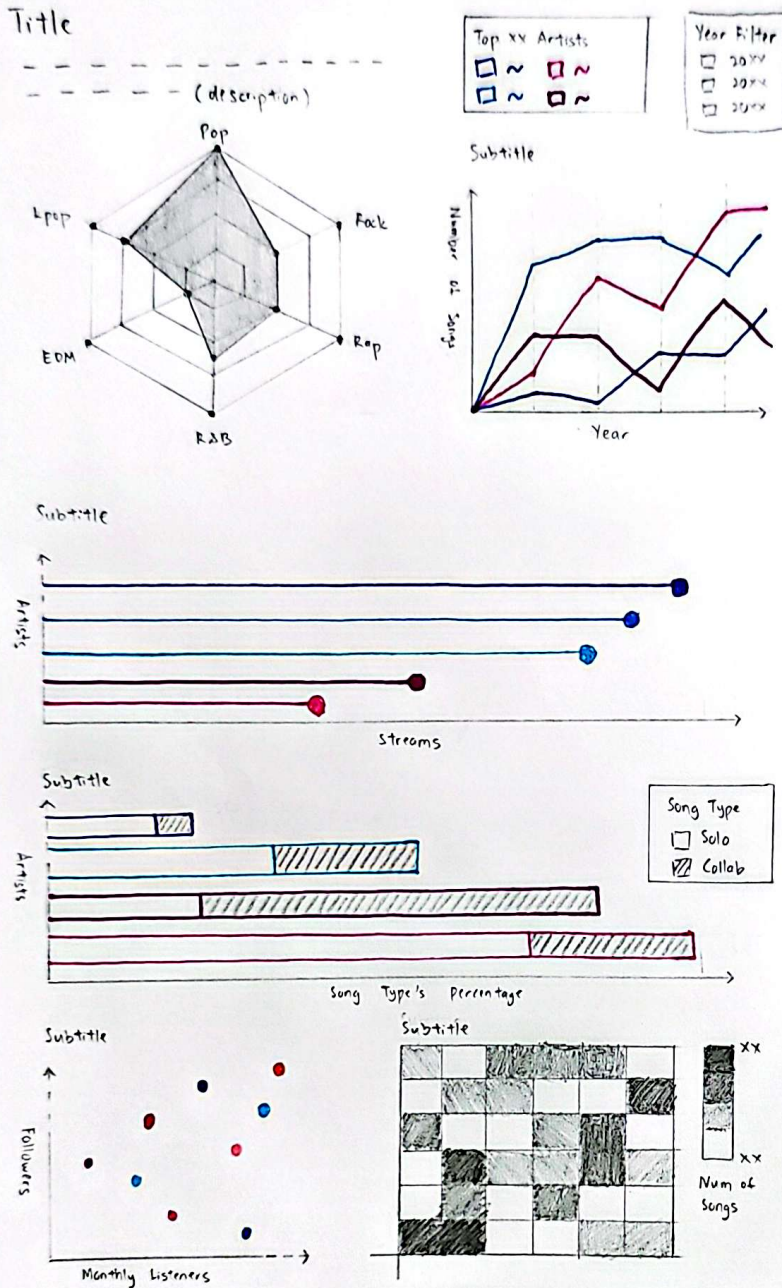 Title
(description)
Top xx Artists
~ ~
~ ~
Year Filter
20xx
20xx
20xx
Pop
Kpop
Rock
EDM
Rap
R&B
Subtitle
Number of Songs
Year
Subtitle
Artists
Streams
Subtitle
Artists
Song Type
Solo
Collab
Song Type's Percentage
Subtitle
Followers
Monthly Listeners
Subtitle
xx
xx
Num of
Songs